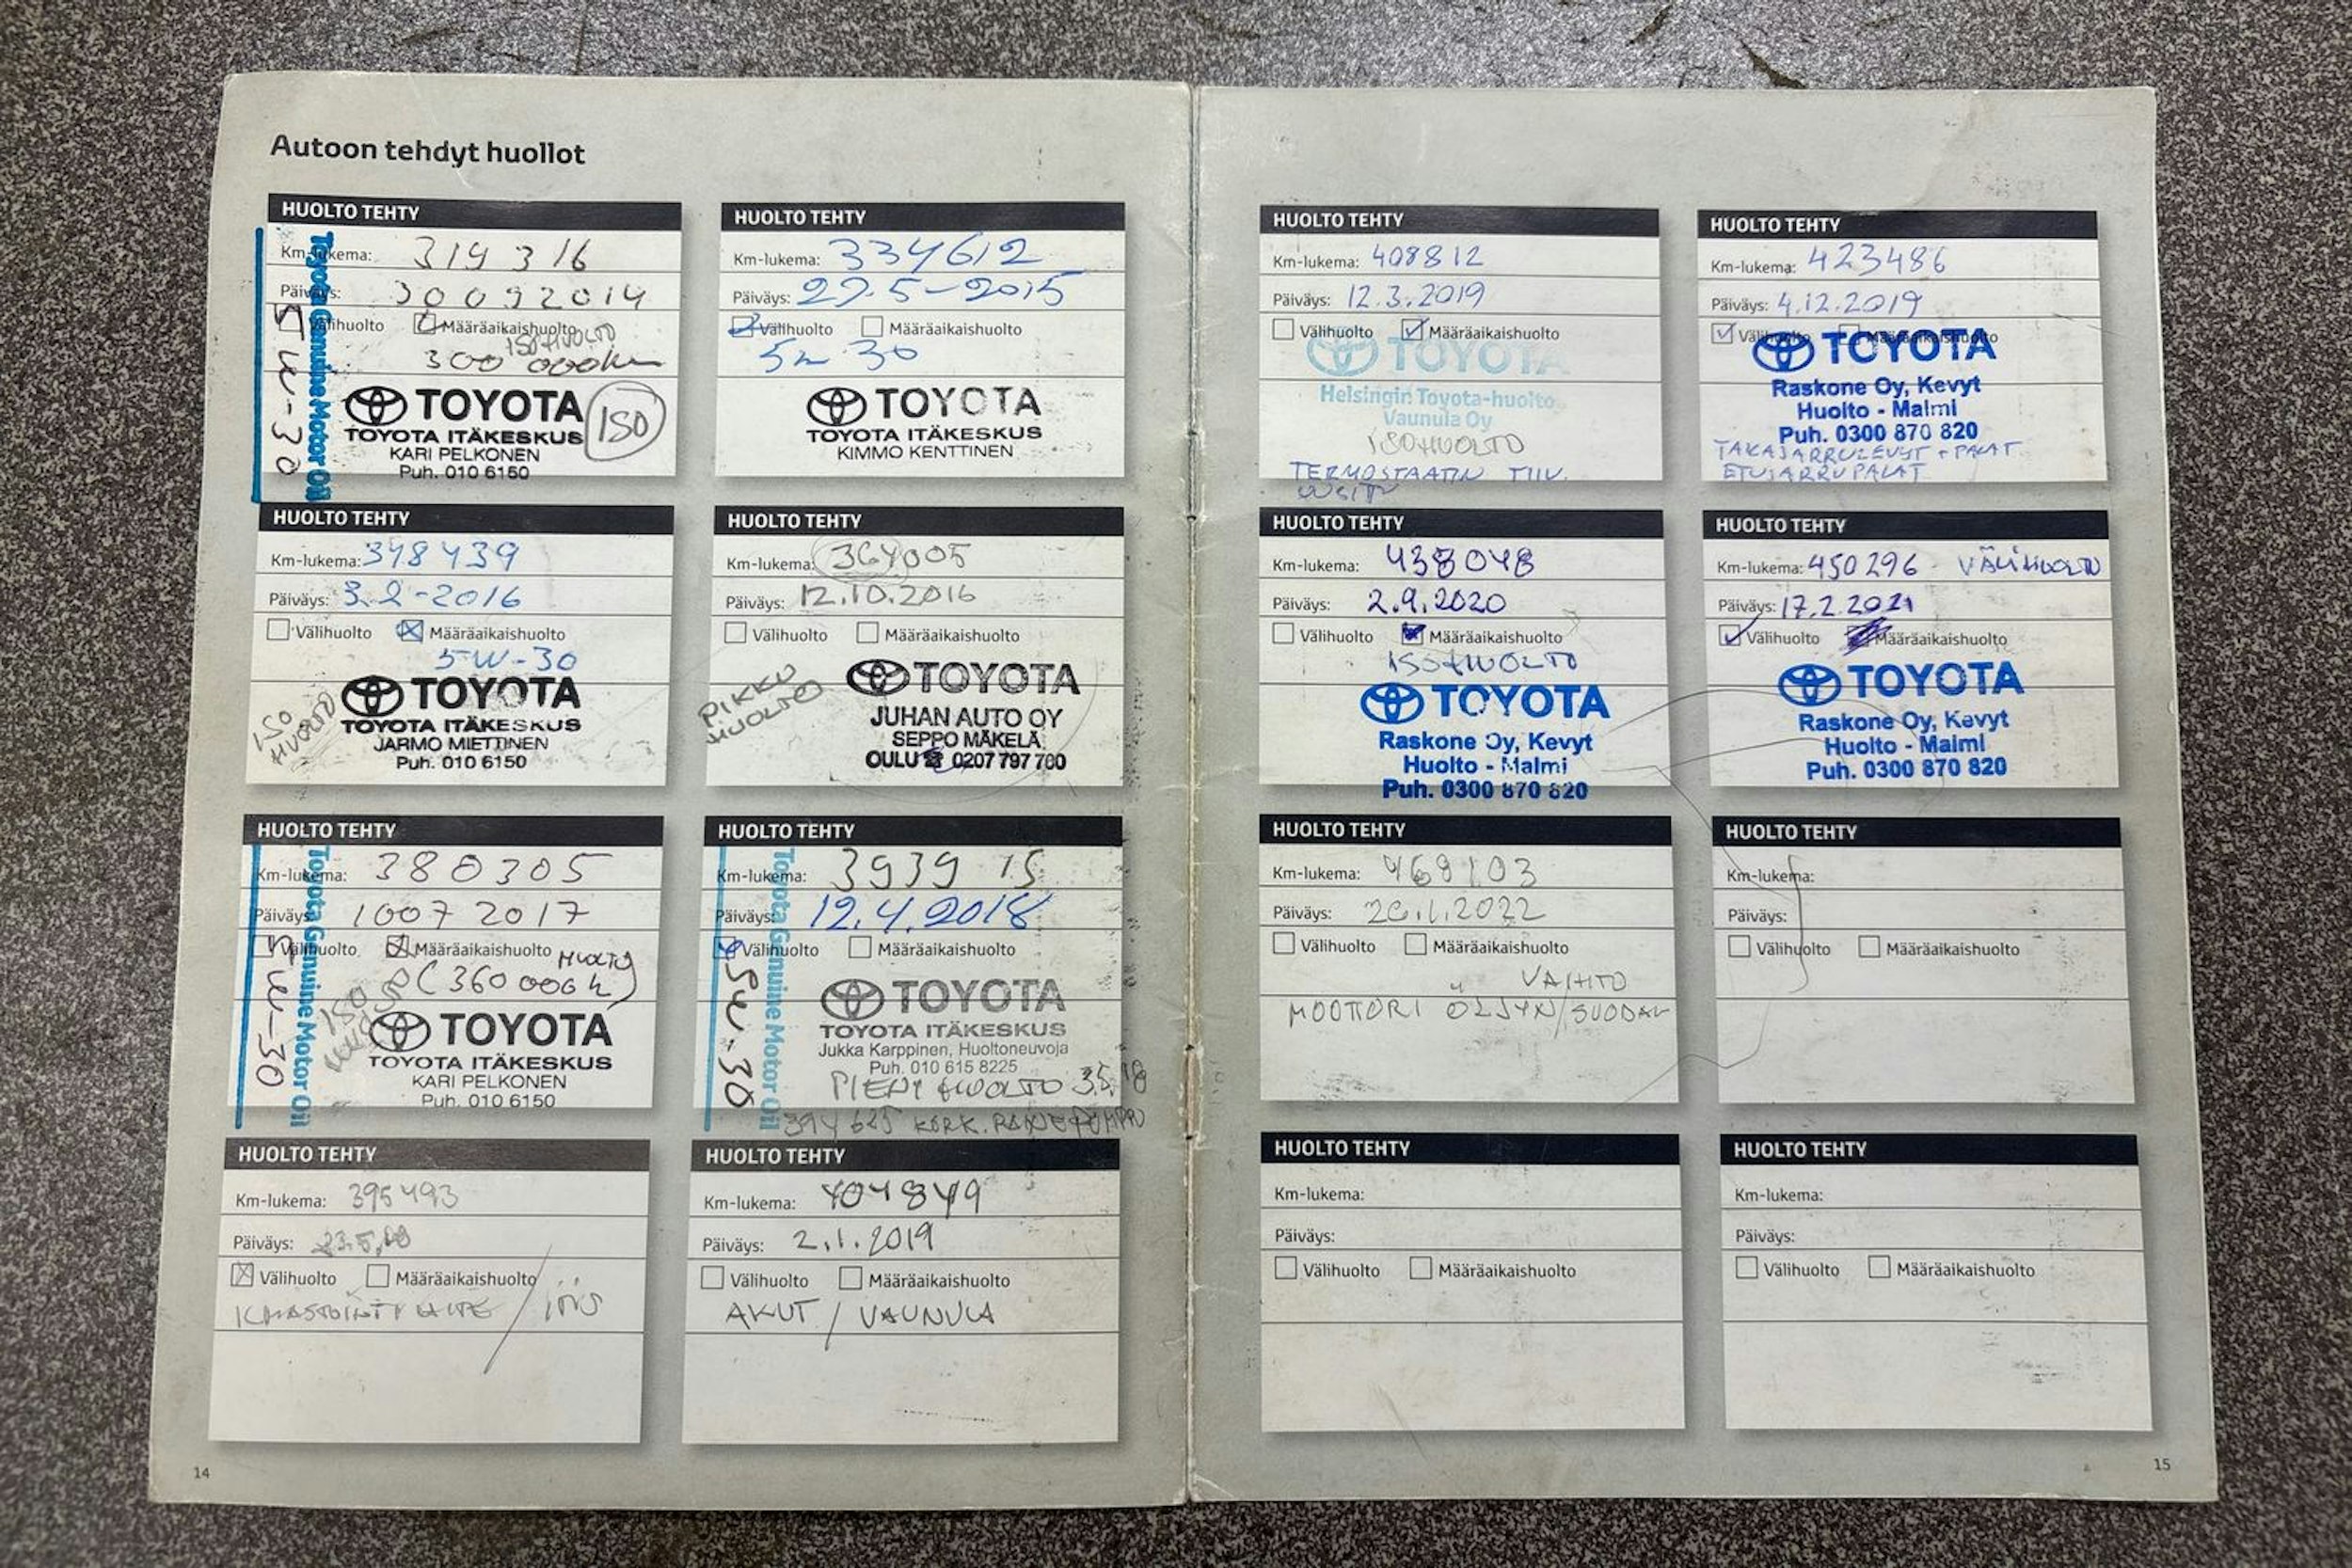 Autoon tehdyt huollot
HUOLTO TEHTY
Km-lukema: 319 316
Päiväys: 30092014
Välihuolto Määräaikaishuolto
ISO HUOLTO
300 000km
Toyota Genuine Motor Oil
5W-30
TOYOTA
TOYOTA ITÄKESKUS
KARI PELKONEN
Puh. 010 6150
ISO
HUOLTO TEHTY
Km-lukema: 334612
Päiväys: 27.5-2015
Välihuolto Määräaikaishuolto
5w 30
TOYOTA
TOYOTA ITÄKESKUS
KIMMO KENTTINEN
HUOLTO TEHTY
Km-lukema: 348439
Päiväys: 3.2-2016
Välihuolto Määräaikaishuolto
5W-30
ISO
HUOLTO
TOYOTA
TOYOTA ITÄKESKUS
JARMO MIETTINEN
Puh. 010 6150
HUOLTO TEHTY
Km-lukema: 364005
Päiväys: 12.10.2016
Välihuolto Määräaikaishuolto
PIKKU
HUOLTO
TOYOTA
JUHAN AUTO OY
SEPPO MÄKELÄ
OULU ☎ 0207 797 760
HUOLTO TEHTY
Km-lukema: 380305
Päiväys: 1007 2017
Välihuolto Määräaikaishuolto
HUOLTO
(360 000k)
Toyota Genuine Motor Oil
5W-30
ISO
HUOLTO
TOYOTA
TOYOTA ITÄKESKUS
KARI PELKONEN
Puh. 010 6150
HUOLTO TEHTY
Km-lukema: 3939 15
Päiväys: 12.4.2018
Välihuolto Määräaikaishuolto
Toyota Genuine Motor Oil
5W-30
TOYOTA
TOYOTA ITÄKESKUS
Jukka Karppinen, Huoltoneuvoja
Puh. 010 615 8225
PIENI HUOLTO 3.5.18
394 625 KORK.
HUOLTO TEHTY
Km-lukema: 395493
Päiväys: 23.5.18
Välihuolto Määräaikaishuolto
ILMASTOINTI
HUOLTO TEHTY
Km-lukema: 404849
Päiväys: 2.1.2019
Välihuolto Määräaikaishuolto
AKUT / VAUNULA
14
HUOLTO TEHTY
Km-lukema: 408812
Päiväys: 12.3.2019
Välihuolto Määräaikaishuolto
TOYOTA
Helsingin Toyota-huolto
Vaunula Oy
ISO HUOLTO
TERMOSTAATIN TIIV.
UUSITTU
HUOLTO TEHTY
Km-lukema: 423486
Päiväys: 4.12.2019
Välihuolto Määräaikaishuolto
TOYOTA
Raskone Oy, Kevyt
Huolto - Malmi
Puh. 0300 870 820
TAKAJARRULEVYT + PALAT
ETUJARRUPALAT
HUOLTO TEHTY
Km-lukema: 438048
Päiväys: 2.9.2020
Välihuolto Määräaikaishuolto
ISO HUOLTO
TOYOTA
Raskone Oy, Kevyt
Huolto - Malmi
Puh. 0300 870 820
HUOLTO TEHTY
Km-lukema: 450296 - VÄLIHUOLTO
Päiväys: 17.2.2021
Välihuolto Määräaikaishuolto
TOYOTA
Raskone Oy, Kevyt
Huolto - Malmi
Puh. 0300 870 820
HUOLTO TEHTY
Km-lukema: 469103
Päiväys: 26.1.2022
Välihuolto Määräaikaishuolto
VAIHTO
MOOTTORI ÖLJYN/SUODAT
HUOLTO TEHTY
Km-lukema:
Päiväys:
Välihuolto Määräaikaishuolto
HUOLTO TEHTY
Km-lukema:
Päiväys:
Välihuolto Määräaikaishuolto
HUOLTO TEHTY
Km-lukema:
Päiväys:
Välihuolto Määräaikaishuolto
15